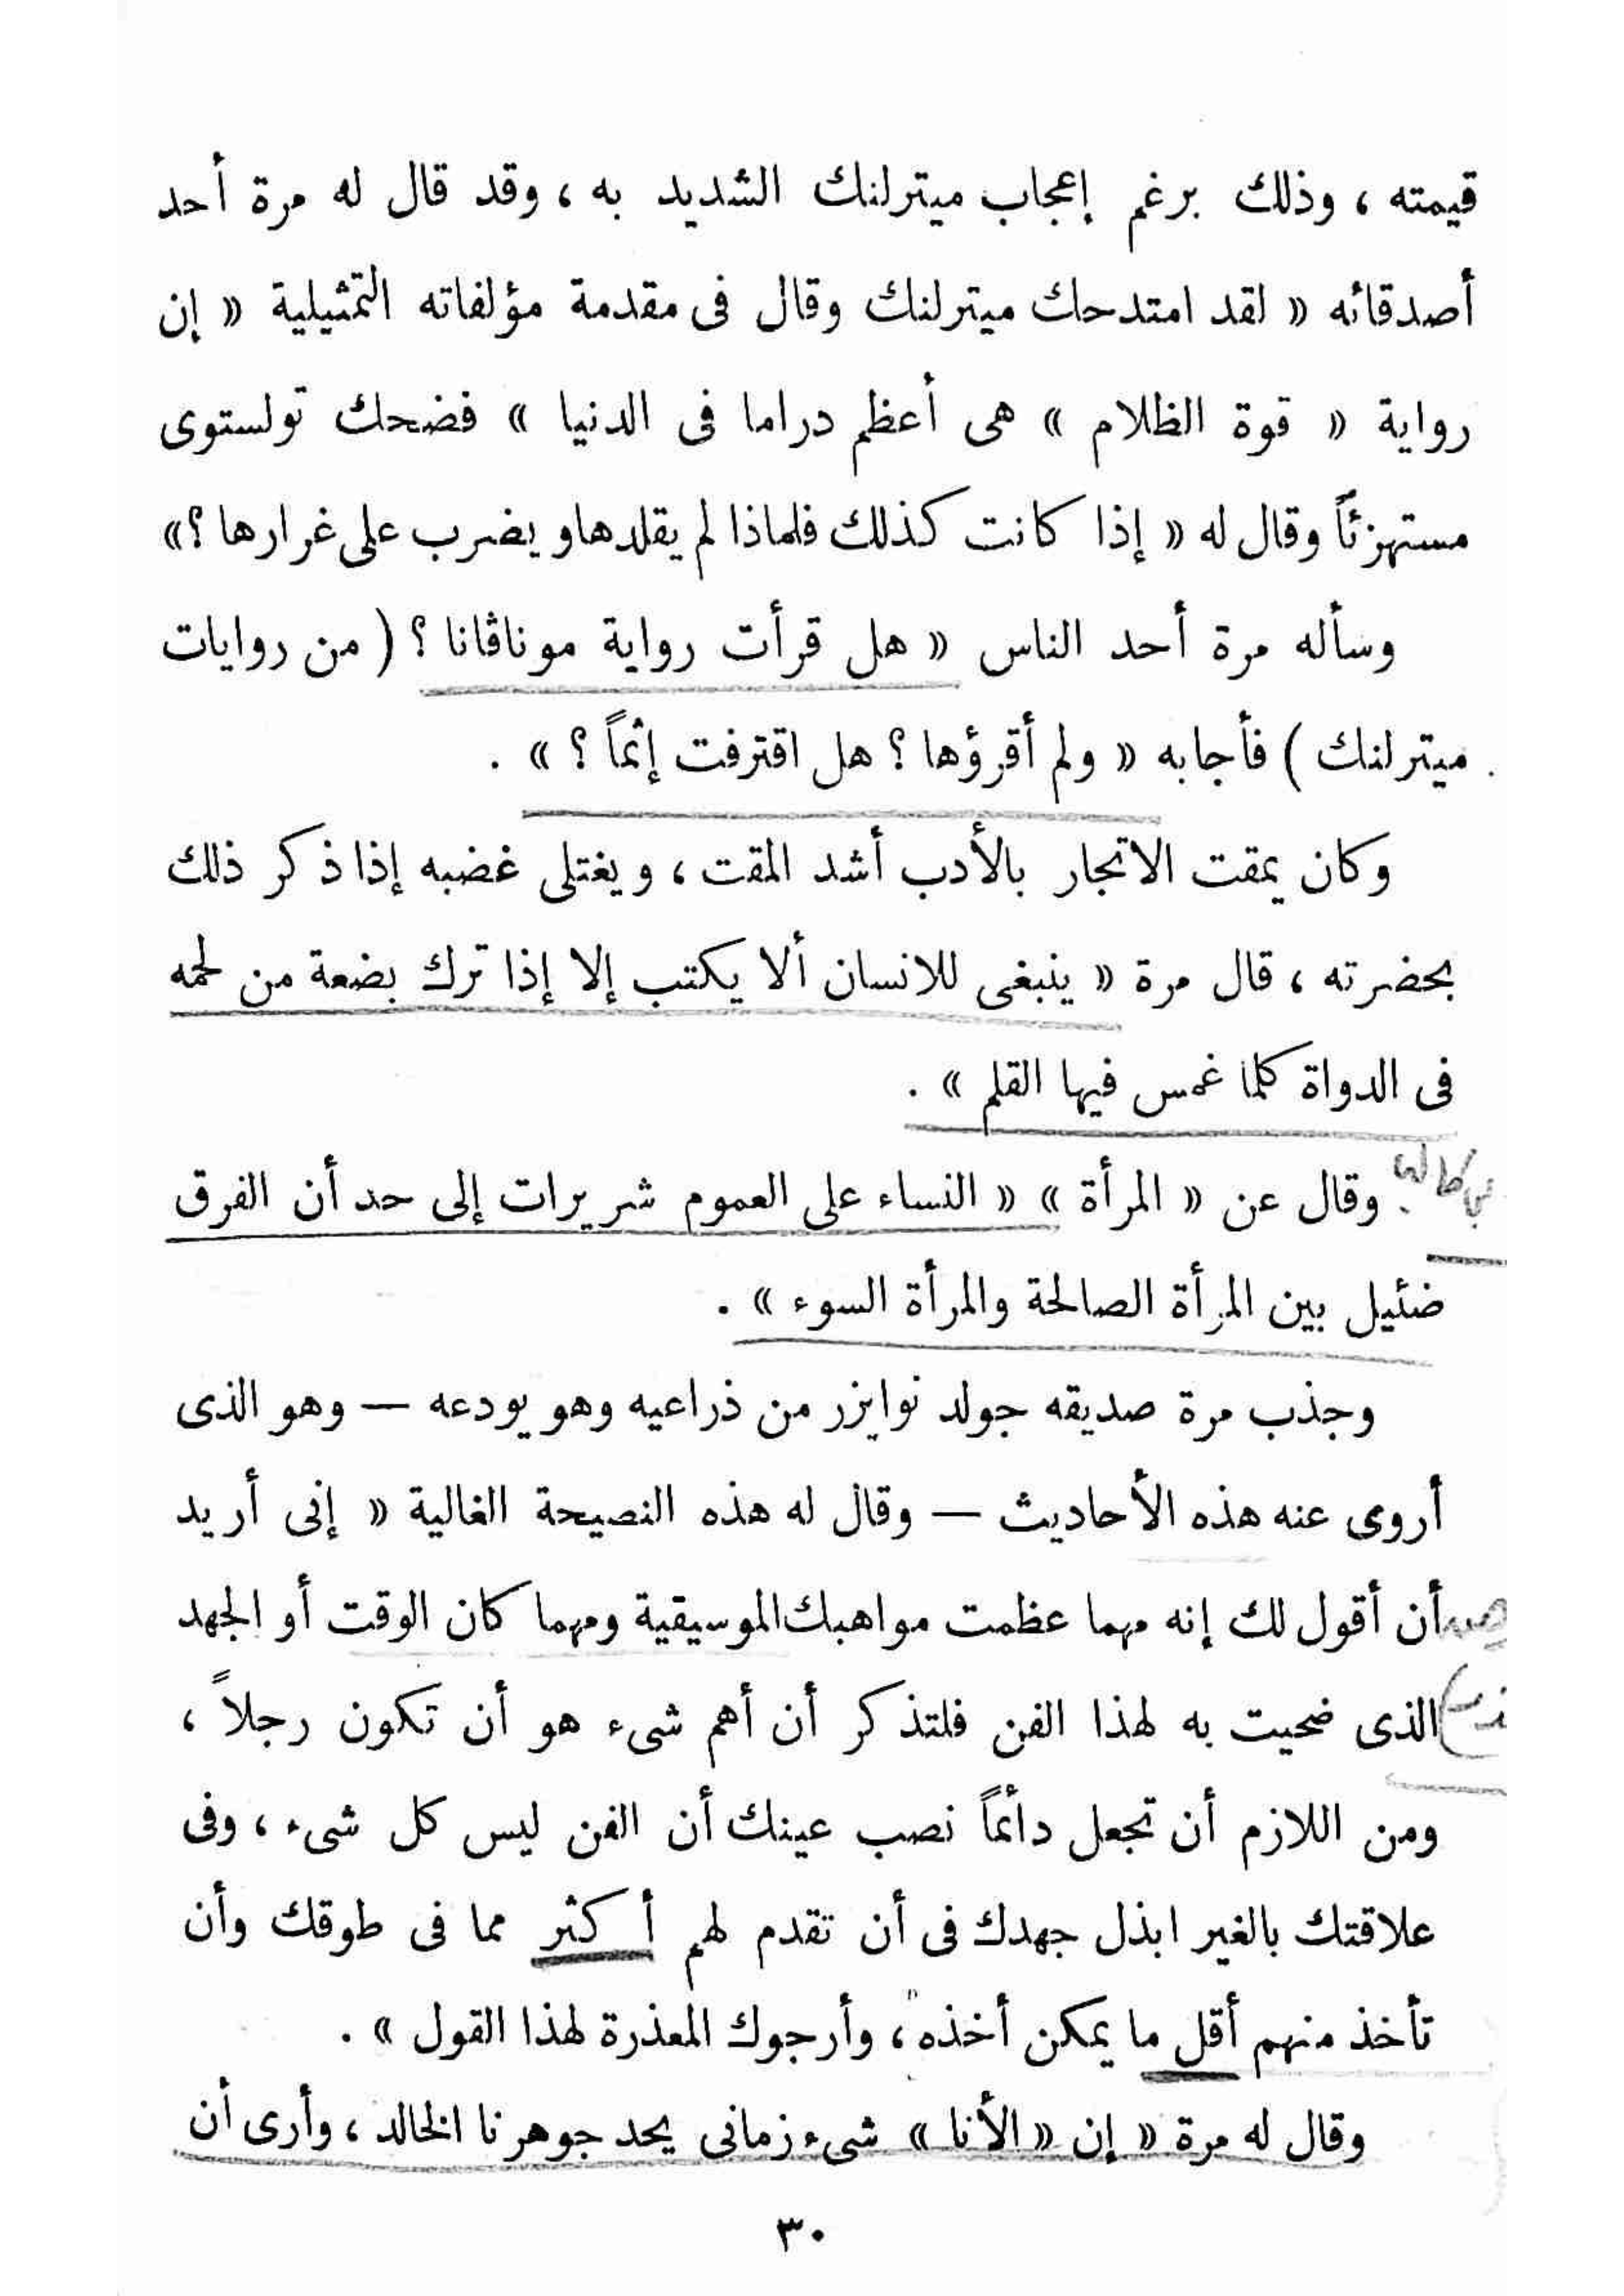 قيمته ، وذلك برغم إعجاب ميترلنك الشديد به ، وقد قال له مرة أحد
أصدقائه « لقد امتدحك ميترلنك وقال فى مقدمة مؤلفاته التمثيلية « إن
رواية « قوة الظلام » هى أعظم دراما فى الدنيا » فضحك تولستوى
مستهزئاً وقال له « إذا كانت كذلك فلماذا لم يقلدها ويضرب على غرارها ؟ »
وسأله مرة أحد الناس « هل قرأت رواية موناڤانا ؟ ( من روايات
ميترلنك ) فأجابه « ولم أقرؤها ؟ هل اقترفت إثماً ؟ » .
وكان يمقت الاتجار بالأدب أشد المقت ، ويغتلى غضبه إذا ذكر ذلك
بحضرته ، قال مرة « ينبغى للانسان ألا يكتب إلا إذا ترك بضعة من لحمه
فى الدواة كلما غمس فيها القلم » .
وقال عن « المرأة » « النساء على العموم شريرات إلى حد أن الفرق
ضئيل بين المرأة الصالحة والمرأة السوء » .
وجذب مرة صديقه جولد نوايزر من ذراعيه وهو يودعه — وهو الذى
أروى عنه هذه الأحاديث — وقال له هذه النصيحة الغالية « إنى أريد
أن أقول لك إنه مهما عظمت مواهبك الموسيقية ومهما كان الوقت أو الجهد
الذى ضحيت به لهذا الفن فلتذكر أن أهم شىء هو أن تكون رجلاً ،
ومن اللازم أن تجعل دأئماً نصب عينك أن الفن ليس كل شىء ، وفى
علاقتك بالغير ابذل جهدك فى أن تقدم لهم أكثر مما فى طوقك وأن
تأخذ منهم أقل ما يمكن أخذه ، وأرجوك المعذرة لهذا القول » .
وقال له مرة « إن « الأنا » شىء زمانى يحد جوهرنا الخالد ، وأرى أن
٣٠